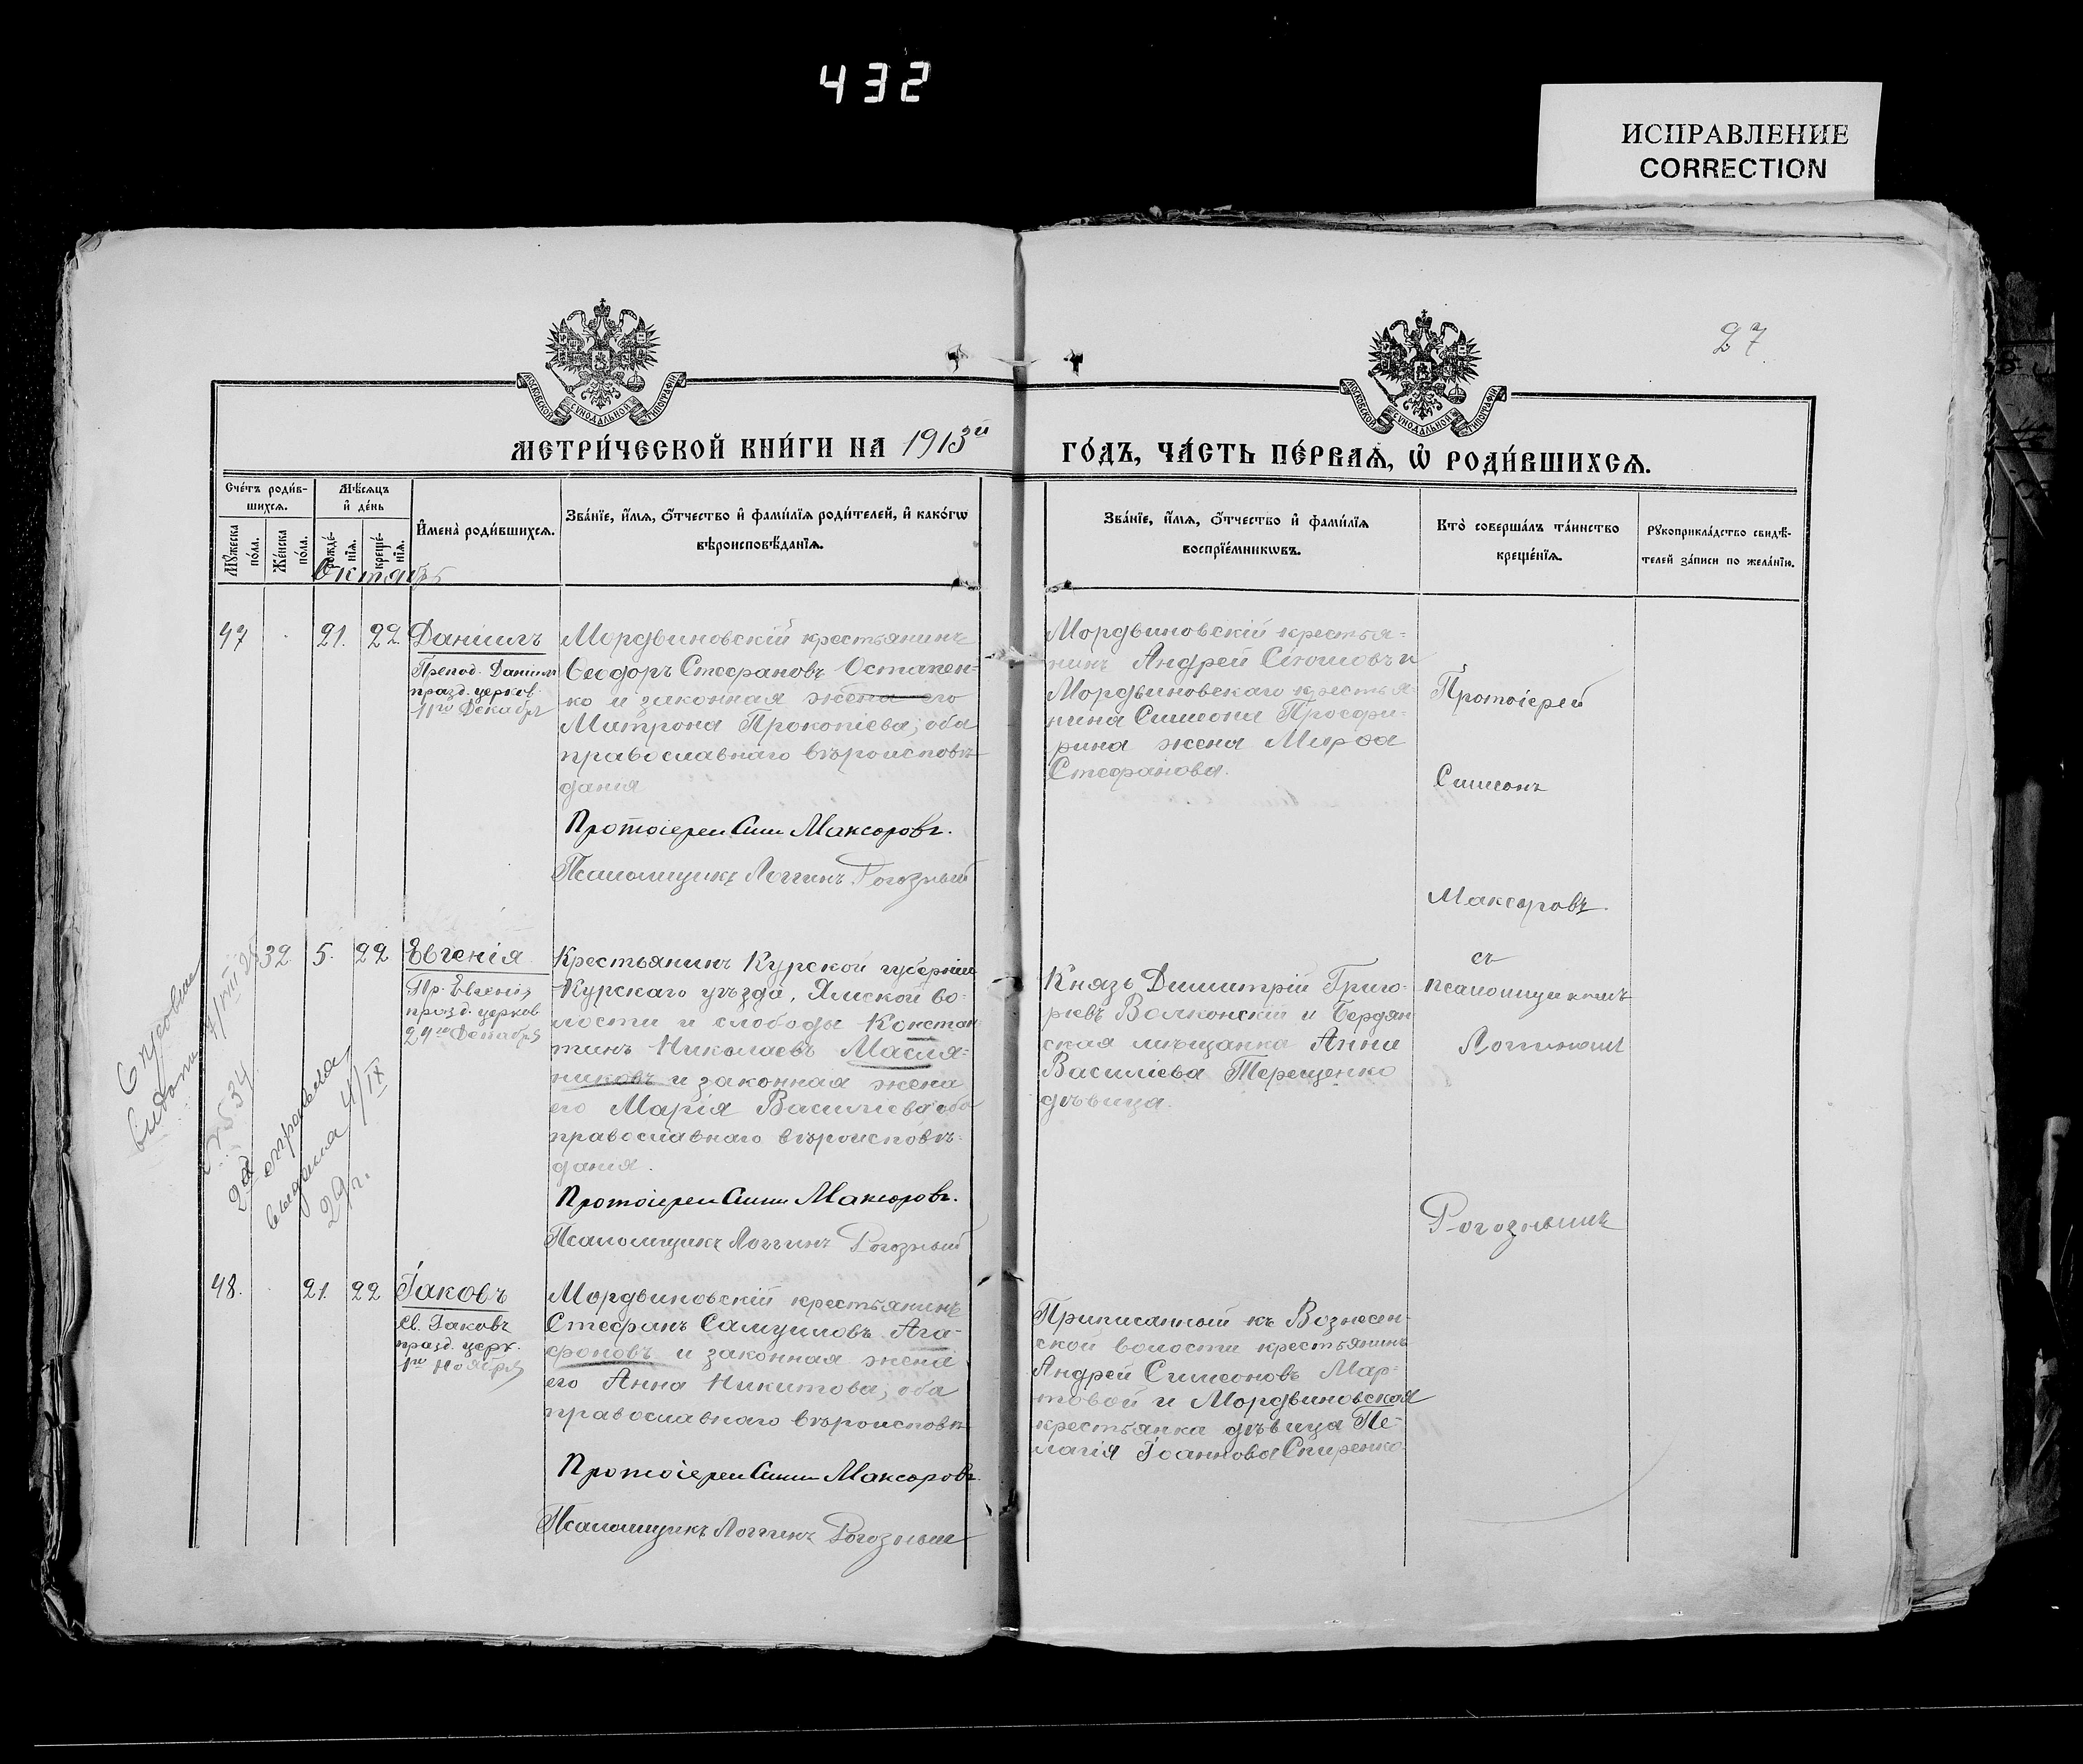 432
ИСПРАВЛЕНИЕ
CORRECTION
27
МОСКОВСКОЙ СѴНОДАЛЬНОЙ ТИПОГРАФІИ
МОСКОВСКОЙ СѴНОДАЛЬНОЙ ТИПОГРАФІИ
МЕТРИ́ЧЕСКОЙ КНИ́ГИ НА 1913й
ГО́ДЪ, ЧА́СТЬ ПЕ́РВАѦ, Ѡ҆ РОДИ́ВШИХСѦ.
Сче́тъ роди́в-
шихсѧ.
Мꙋ́жеска по́ла.
Же́нска по́ла.
Мѣ́сѧцъ
и҆ де́нь
рожде́-
нїѧ.
креще́-
нїѧ.
И҆мена̀ роди́вшихсѧ.
Зва́нїе, и҆́мѧ, ѻ҆́тчество и҆ фами́лїѧ роди́телей, и҆ како́гѡ
вѣроисповѣ́данїѧ.
Зва́нїе, и҆́мѧ, ѻ҆́тчество и҆ фами́лїѧ
воспрїе́мникѡвъ.
Кто̀ соверша́лъ та́инство
креще́нїѧ.
Рꙋкоприкла́дство свидѣ́-
телей за́писи по жела́нїю.
Октябр
47
21.
22.
Даніилъ
Препод. Даніилъ
празд. церков.
11го Декабря
Мордвиновскій крестьянинъ
Ѳеодоръ Стефановъ Остапен-
ко и законная жена его
Матрона Прокопіева; оба
православнаго вѣроисповѣ-
данія
Протоіерей Сим Максоровъ.
Псаломщикъ Логгинъ Рогозный
Мордвиновскій крестья-
нинъ Андрей и
Мордвиновскаго крестья-
нина Симеона Просфи-
рина жена Марфа
Стефанова.
Протоіерей
Симеонъ
Максоровъ
съ
псаломщикомъ
Логиномъ
Рогознымъ
32.
5.
22
Евгенія
Пр. Евгенія
празд. церков.
24го Декабря
Крестьянинъ Курской губерніи
Курскаго уѣзда, Ямской во-
лости и слободы Констан
тинъ Николаевъ Масля-
никовъ и законная жена
его Марія Василіева оба
православнаго вѣроисповѣ-
данія.
Протоіерей Сим Максоровъ.
Псаломщикъ Логгинъ Рогозный
Князь Димитрій Григо-
рьевъ Волконскій и Бердян
ская мѣщанка Анна
Василіева Терещенко
дѣвица.
видана
№ 34
2я
выдана 4/IX
29 г.
48.
21.
22
Іаковъ
Св. Іаковъ
празд. церк.
1го Ноября
Мордвиновскій крестьянинъ
Стефанъ Самуиловъ Ага-
фоновъ и законная жена
его Анна Никитова; оба
православнаго вѣроисповѣ
Протоіерей Сим Максоровъ.
Псаломщикъ Логгинъ Рогозный
Приписанный къ Вознесен-
ской волости крестьянинъ
Андрей Симеоновъ Мар-
товой и Мордвиновская
крестьянка дѣвица Пе-
лагія Іоаннова Спиренко